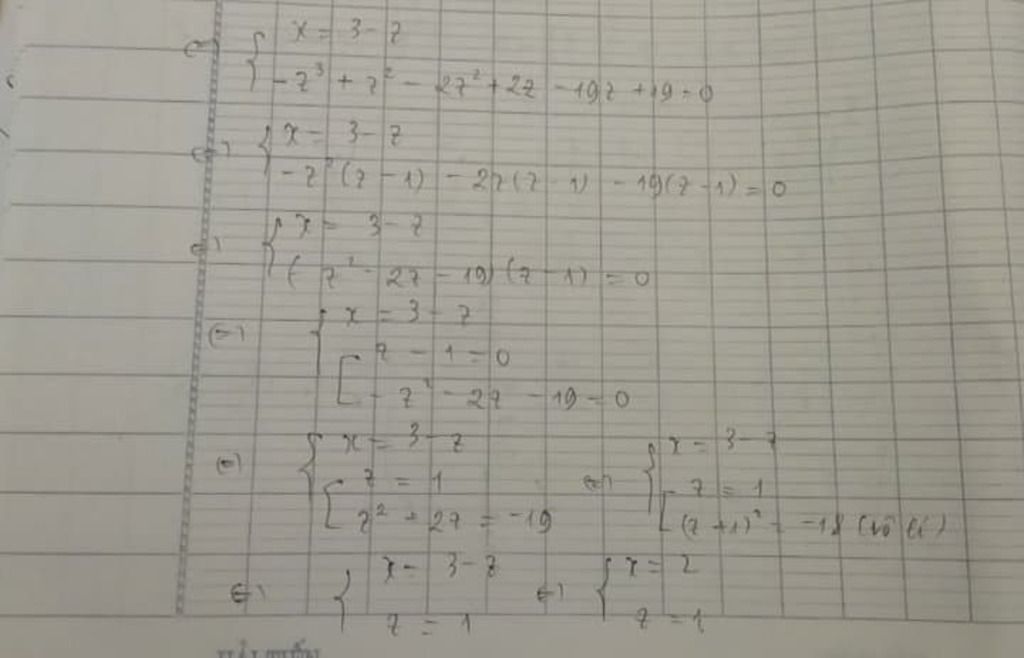 ⇔ { x = 3 - z
- z³ + z² - 2z² + 2z - 19z + 19 = 0
⇔ { x = 3 - z
- z²(z - 1) - 2z(z - 1) - 19(z - 1) = 0
⇔ { x = 3 - z
(- z² - 2z - 19)(z - 1) = 0
⇔ { x = 3 - z
[ z - 1 = 0
- z² - 2z - 19 = 0
⇔ { x = 3 - z
[ z = 1
z² + 2z = -19
⇔ { x = 3 - z
[ z = 1
(z + 1)² = -18 (vô lí)
⇔ { x = 3 - z
z = 1
⇔ { x = 2
z = 1